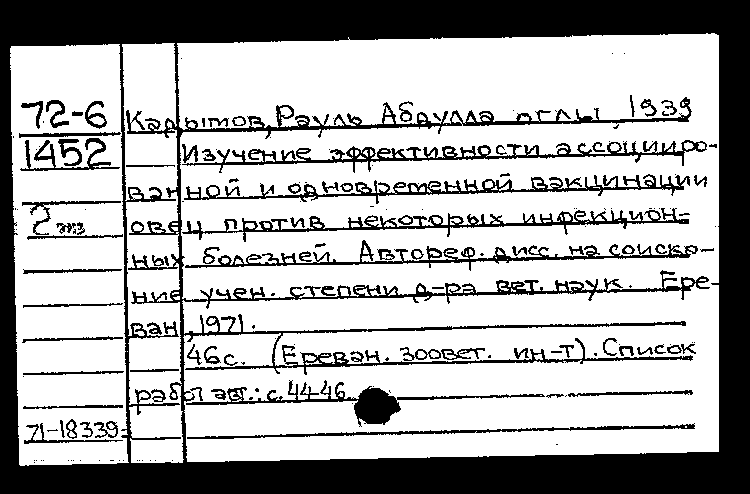 72-6
1452
2 экз
Кадымов, Рауль Абдулла оглы, 1939
Изучение эффективности ассоцииро-
ванной и одновременной вакцинации
овец против некоторых инфекцион-
ных болезней. Автореф. дисс. на соиска-
ние учен. степени д-ра вет. наук. Ере-
ван, 1971.
46с. (Ереван. зоовет. ин-т). Список
работ авт.: с. 44-46
71-18339